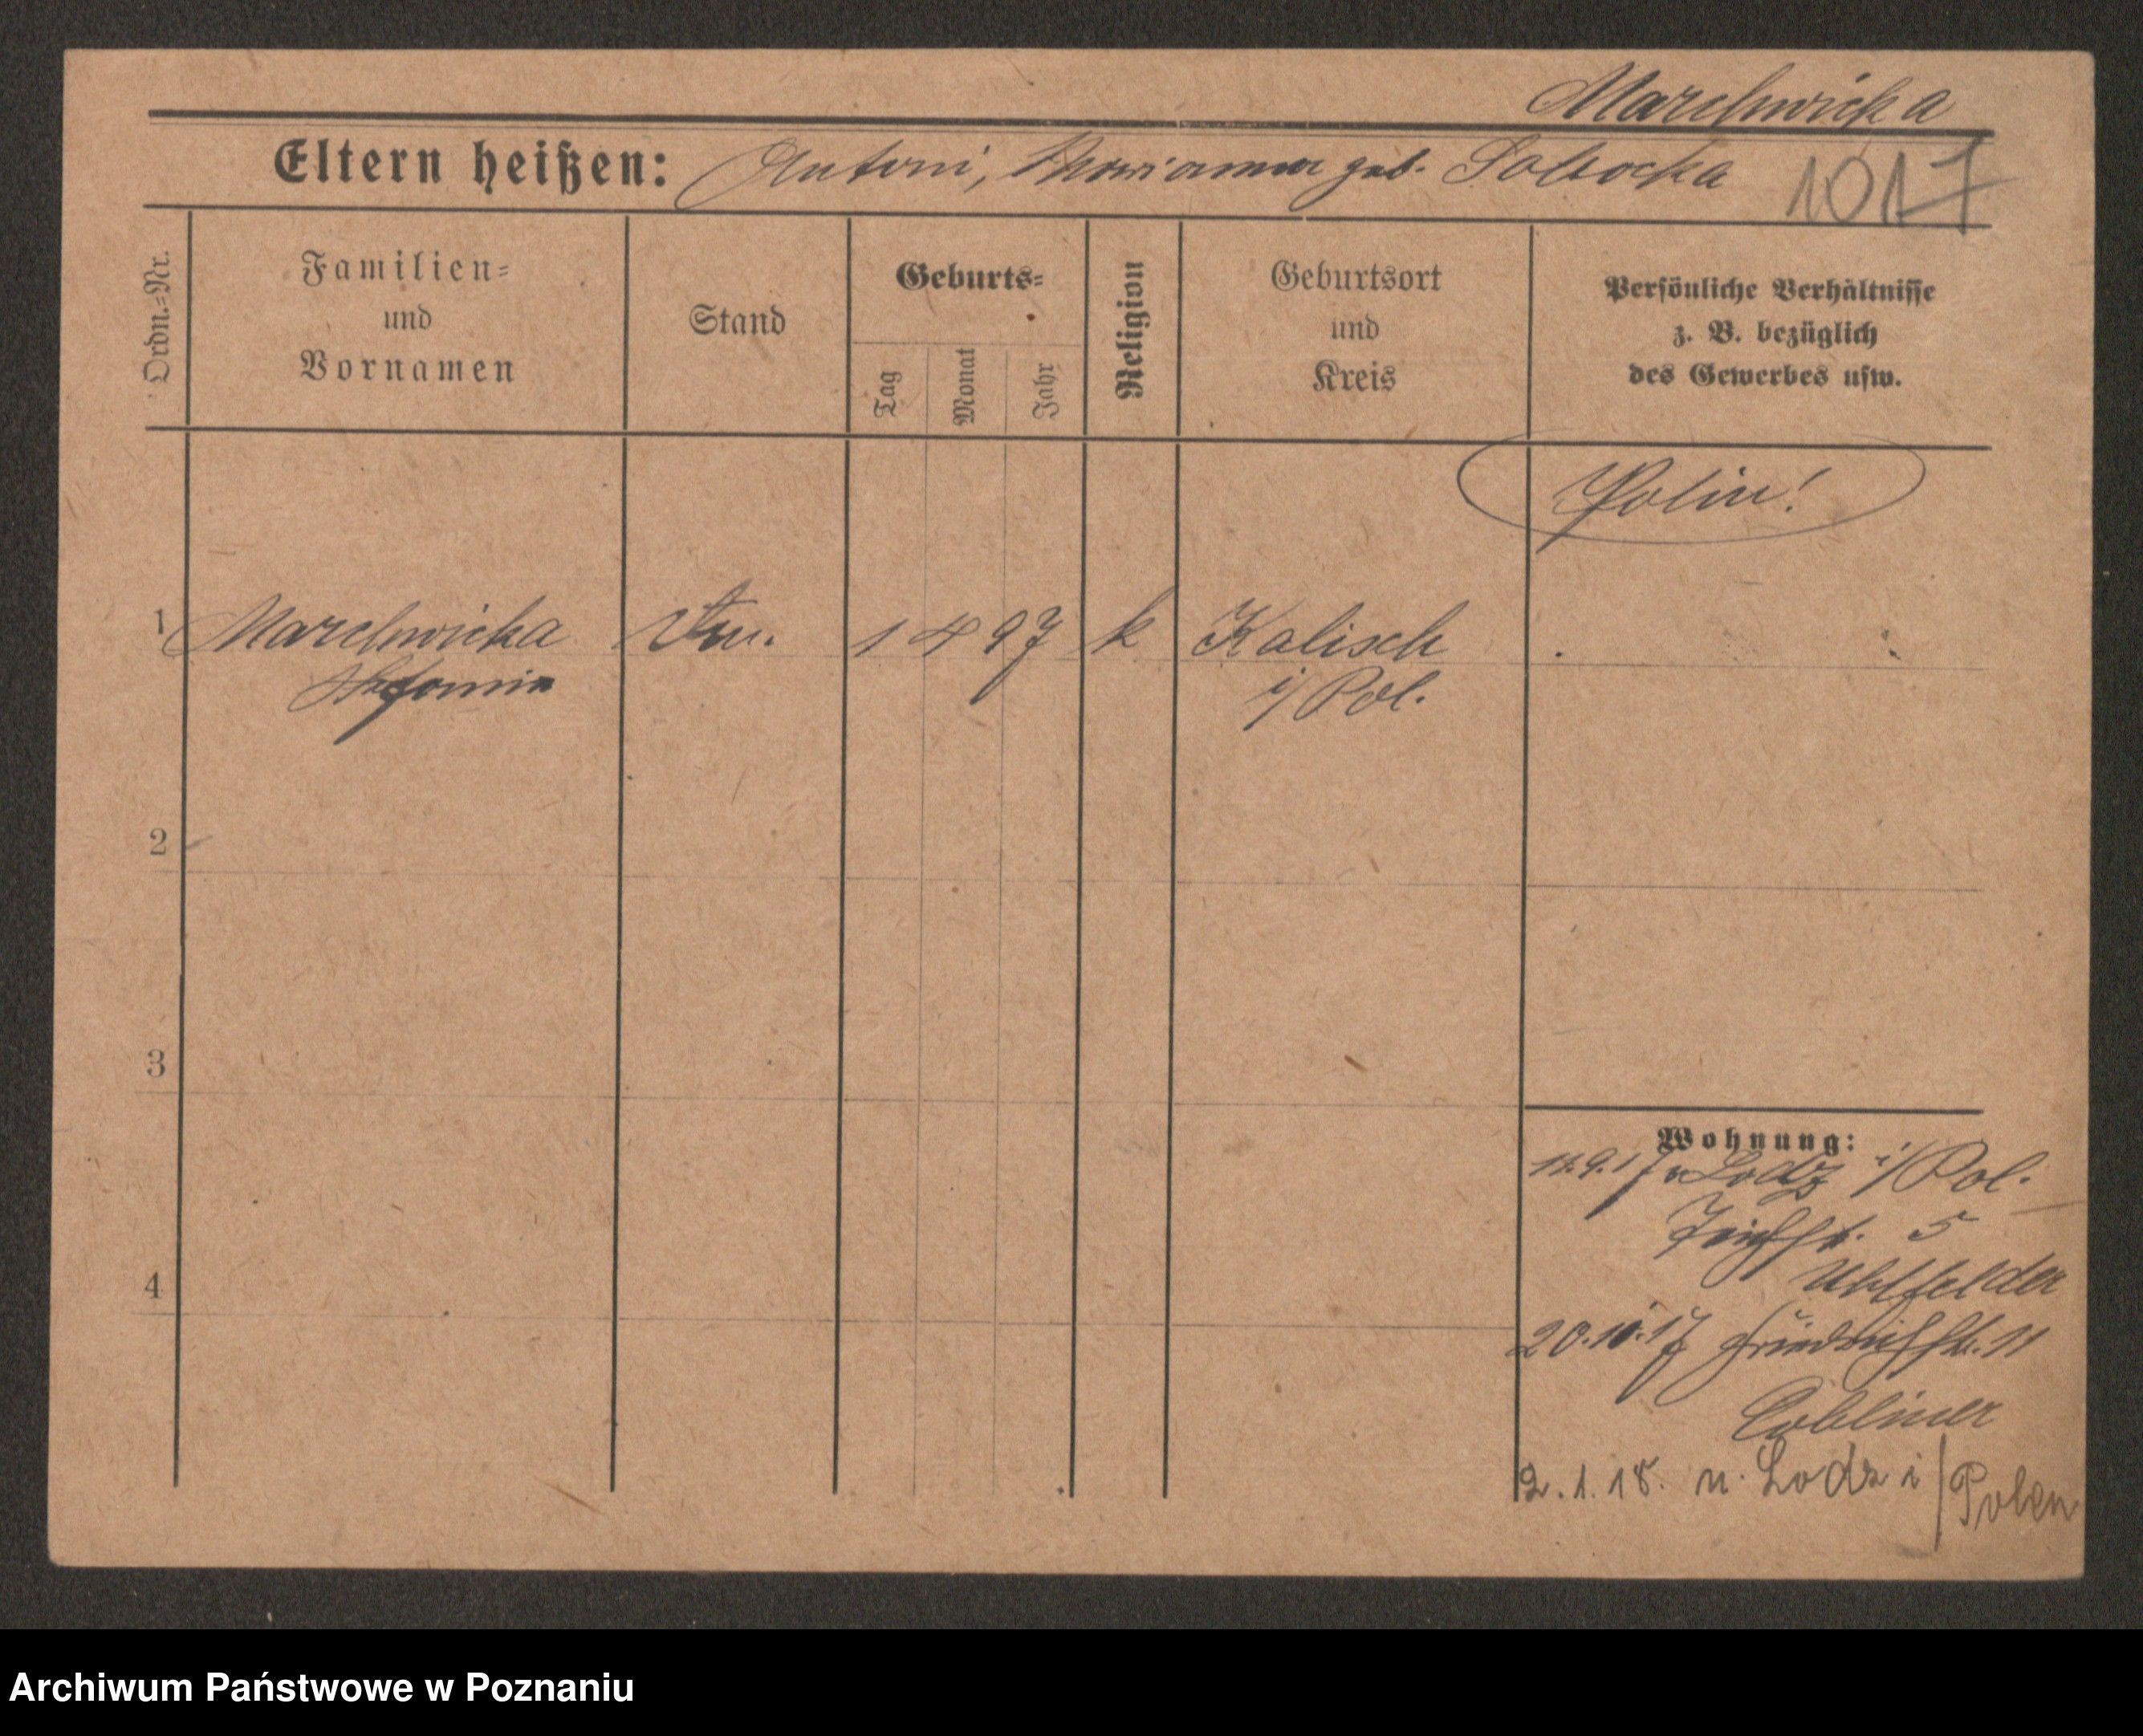 Marchwicka
Eltern heißen: Antoni, Marianna geb. Sobocka 1017
Ordn.=Nr.
Familien=
und
Vornamen
Stand
Geburts=
Tag
Monat
Jahr
Religion
Geburtsort
und
Kreis
Persönliche Verhältnisse
z. B. bezüglich
des Gewerbes usw.
Polin!
1 Marchwicka 1 4 97 k Kalisch
Stefania i/Pol.
2
3
4
Wohnung:
11.9.17 v Lodz i/Pol.
Teichstr. 5
Uhlfelder
20.10.17 Friedrichstr. 11
Cobliner
2.1.18. n. Lodz i/Polen
Archiwum Państwowe w Poznaniu